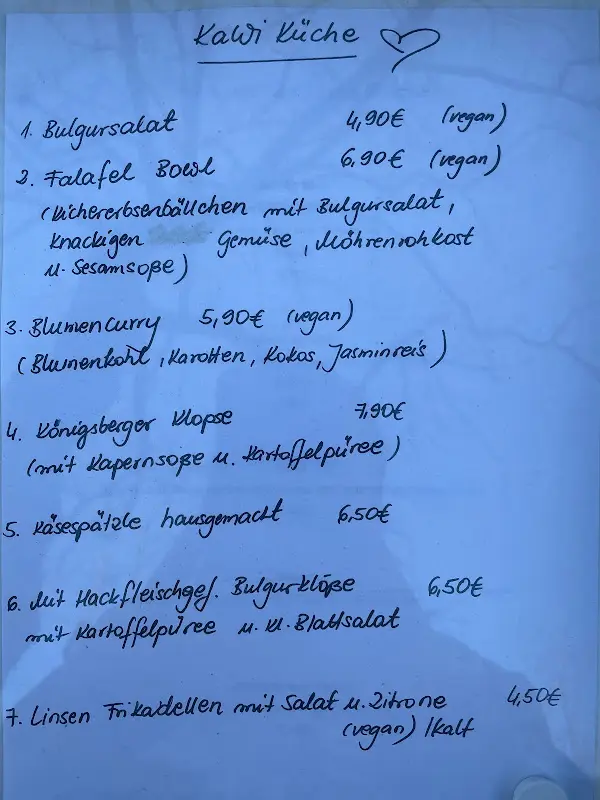 Kawi Küche
1. Bulgursalat 4,90€ (vegan)
2. Falafel Bowl 6,90€ (vegan)
(Kichererbsenbällchen mit Bulgursalat,
knackigen Gemüse, Möhrenrohkost
u. Sesamsoße)
3. Blumencurry 5,90€ (vegan)
(Blumenkohl, Karotten, Kokos, Jasminreis)
4. Königsberger Klopse 7,90€
(mit Kapernsoße u. Kartoffelpüree)
5. Käsespätzle hausgemacht 6,50€
6. Mit Hackfleischgef. Bulgurklöße 6,50€
mit Kartoffelpüree u. kl. Blattsalat
7. Linsen Frikadellen mit Salat u. Zitrone 4,50€
(vegan) /kalt